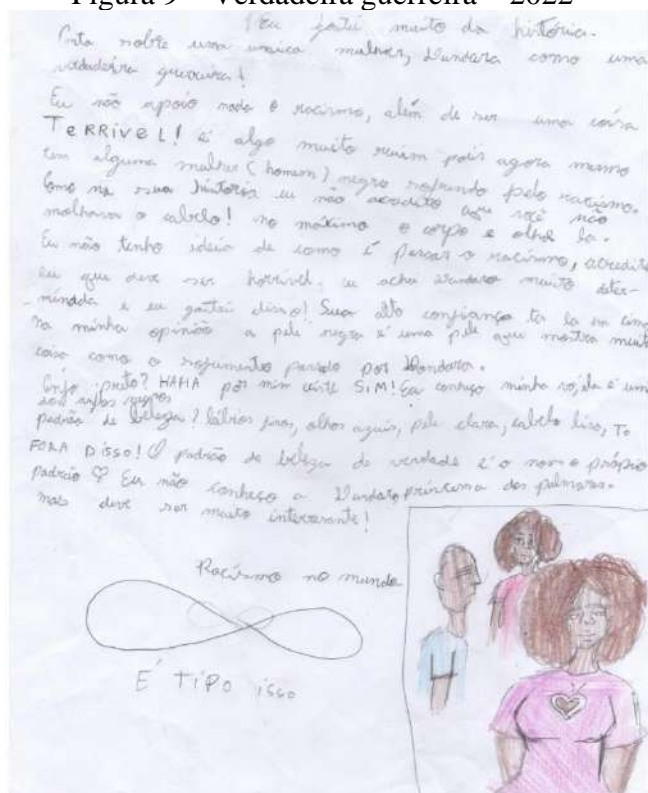 Figura 9 – Verdadeira guerreira – 2022
Eu gostei muito da história.
Conta sobre uma única mulher, Dandara como uma
verdadeira guerreira!
Eu não apoio nada o racismo, além de ser uma coisa
TeRRíVeL! é algo muito ruim pois agora mesmo
tem alguma mulher (homem) negro sofrendo pelo racismo.
Como na sua história eu não acredito que você não
molhava o cabelo! no máximo o corpo e olhe la.
Eu não tenho ideia de como é passar o racismo, acredito
eu que deve ser horrível, eu acho Dandara muito deter-
minada e eu gostei disso! Sua alto confiança ta la em cima
na minha opinião a pele negra é uma pele que mostra muita
coisa como o sofrimento passado por Dandara.
Anjo preto? HAHA por mim existe SIM! Eu conheço minha vó, ela é um
dos anjos negros
padrão de beleza? lábios finos, olhos azuis, pele clara, cabelo liso, To
FORA DISSO! O padrão de beleza de verdade é o nosso próprio
padrão ♡ Eu não conheço a Dandara princesa dos palmares.
mas deve ser muito interessante!
Racismo no mundo
É TiPO isso